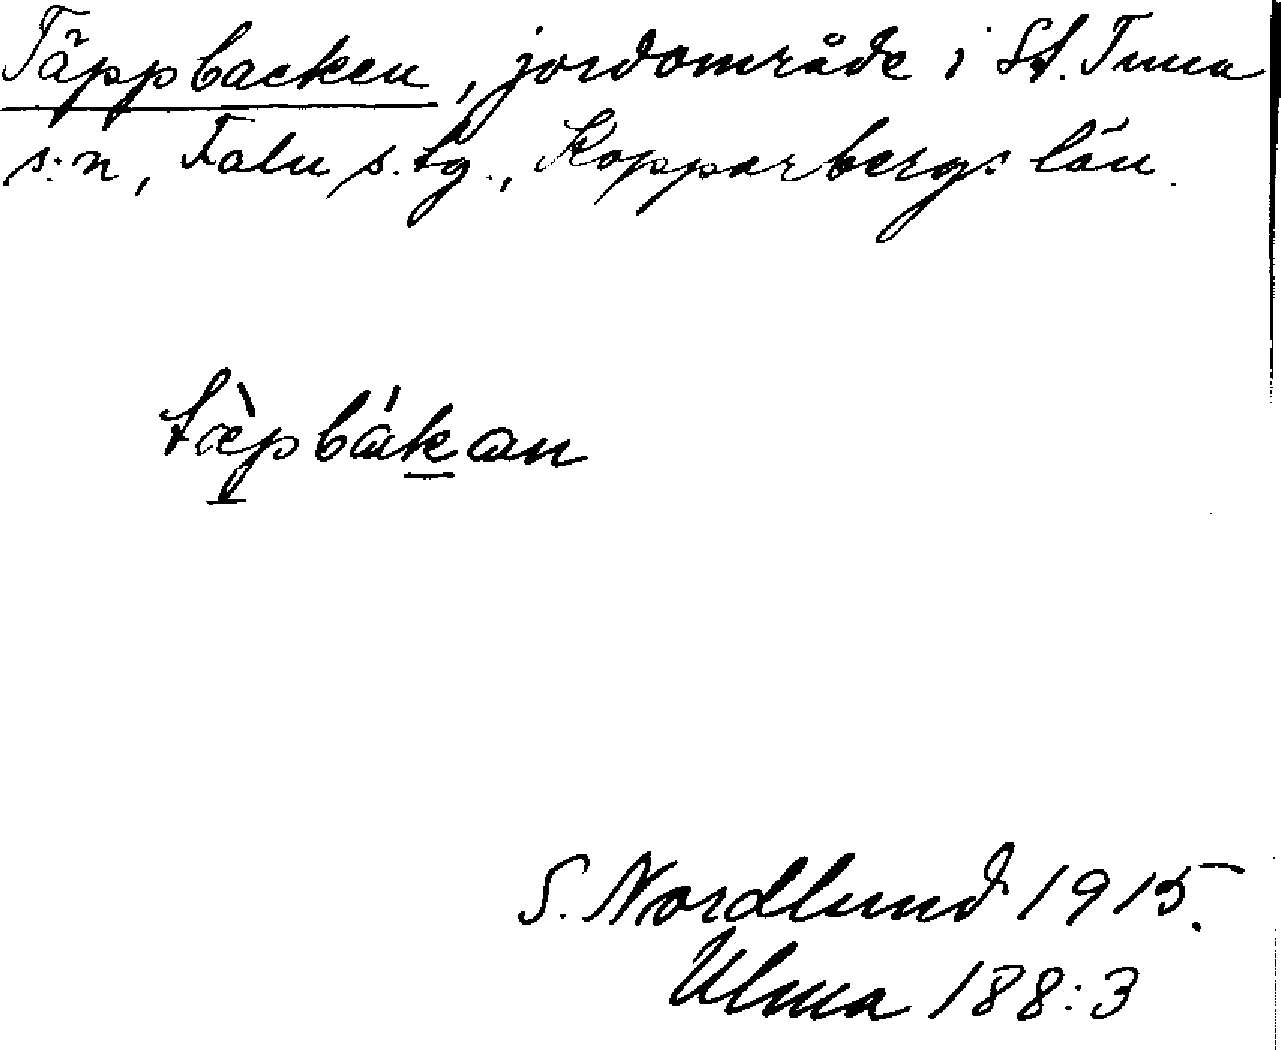 Täppbacken, jordområde i St. Tuna
s:n, Falu s.lg., Kopparbergs län.
tæ̀pbákan
S. Nordlund 1915.
Ulma 188:3